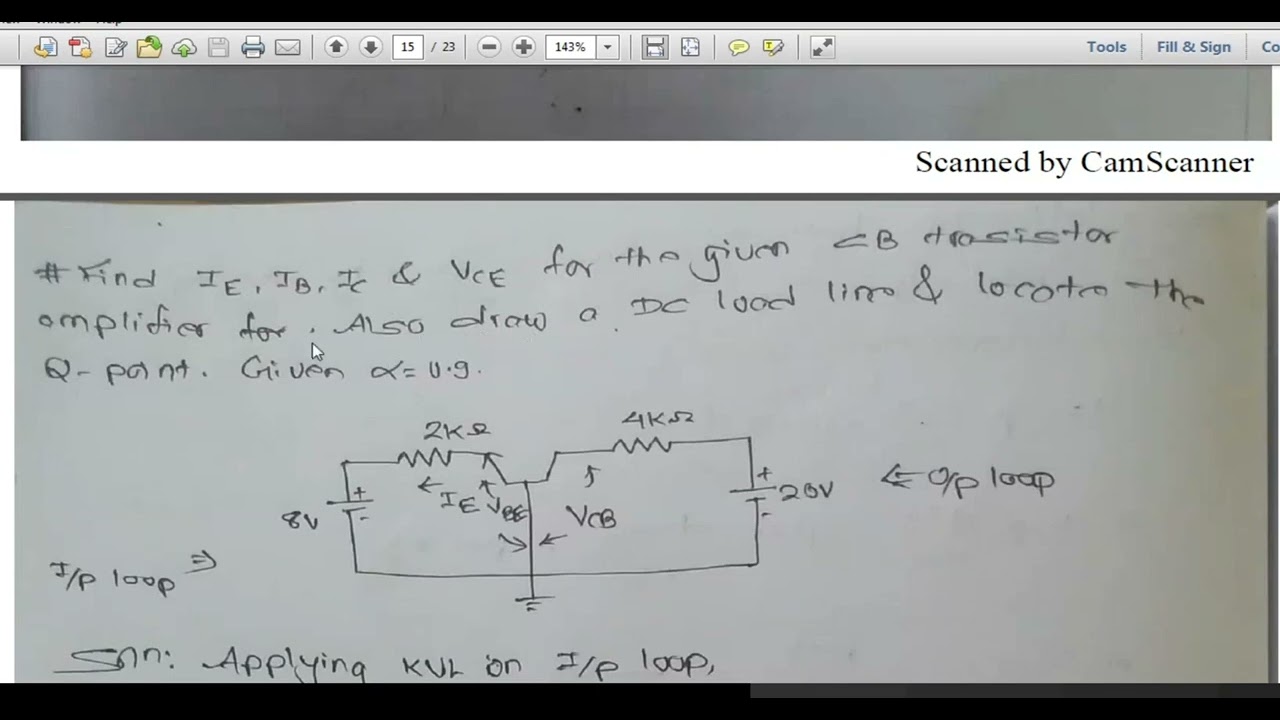 Window Help
15 / 23
143%
Tools
Fill & Sign
Co
Scanned by CamScanner
# Find IE, IB, IC & VCE for the given CB trasistor
amplifier for. Also draw a DC load line & locate the
Q-point. Given α = 0.9.
2KΩ
4KΩ
+
-
8V
IE
VBE
VCB
+
-
20V
⇐ O/p loop
I/p loop ⇒
Soln: Applying KVL on I/p loop,